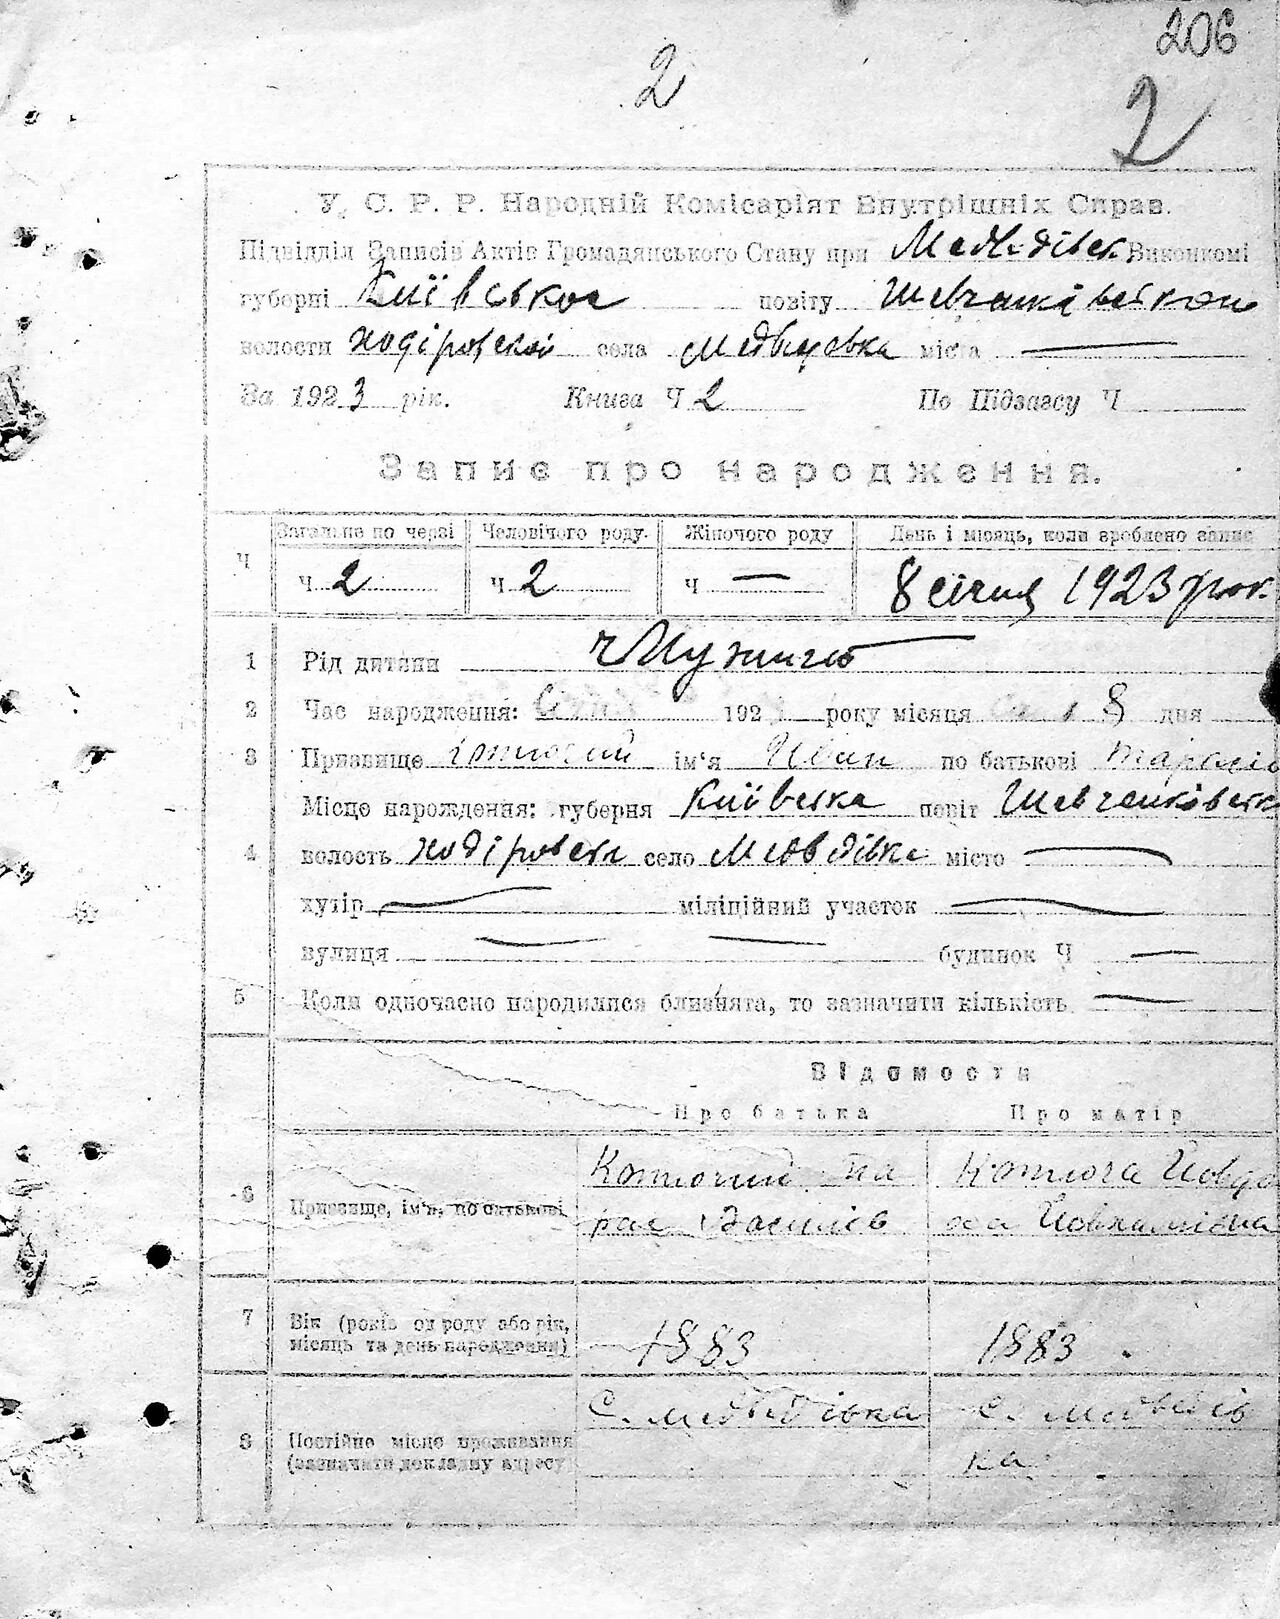 206
2
2
У. С. Р. Р. Народній Комісаріят Внутрішніх Справ.
Підвідділ Записів Актів Громадянського Стану при Медведівск Виконкомі
губерні Київської повіту Шевченківської
волости села Медведовка міста —
За 1923 рік. Книга Ч 2 По Підзагсу Ч
Запис про народження.
Загальне по черзі Человічого роду. Жіночого роду День і місяць, коли зроблено запис
Ч ч 2 ч 2 ч — 8 січня 1923 рок.
1 Рід дитини
2 Час народження: 192 року місяця 8 дня
3 Призвище ім'я Иван по батькові
Місце нарождення: губерня Київська повіт Шевченківськ
4 волость село Медвідівка місто —
хутір — міліційний участок —
вулиця — — будинок Ч —
5 Коли одночасно народилися близнята, то зазначити кількість —
Відомости
Про батька Про матір
6 Призвище, ім'я, по батькові
Василів
7 Вік (років од роду або рік,
місяць та день народження) 1883 1883
С. Медведівка С. Медведів
8 Постійне місце проживання
(зазначити докладну адресу) ка